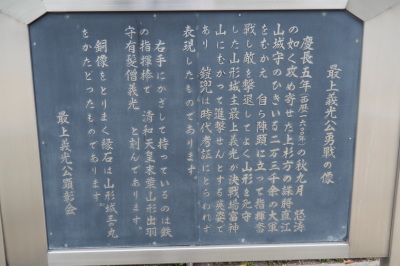 最上義光公勇戦の像
慶長五年(西暦一六〇〇年)の秋九月 怒涛
の如く攻め寄せた上杉方の謀将直江
山城守のひきいる二万三千余の大軍
をむかえ 自ら陣頭に立って指揮奮
戦し敵を撃退してよく山形を死守
した山形城主最上義光が決戦場富神
山にむかって進撃せんとする英姿で
あり 鎧兜は時代考証にとらわれず
表現したものであります
右手にかざして持っているのは鉄
の指揮棒で 清和天皇末葉山形出羽
守有髪僧義光 と刻んであります。
銅像をとりまく縁石は山形城三の丸
をかたどったものであります。
最上義光公顕彰会